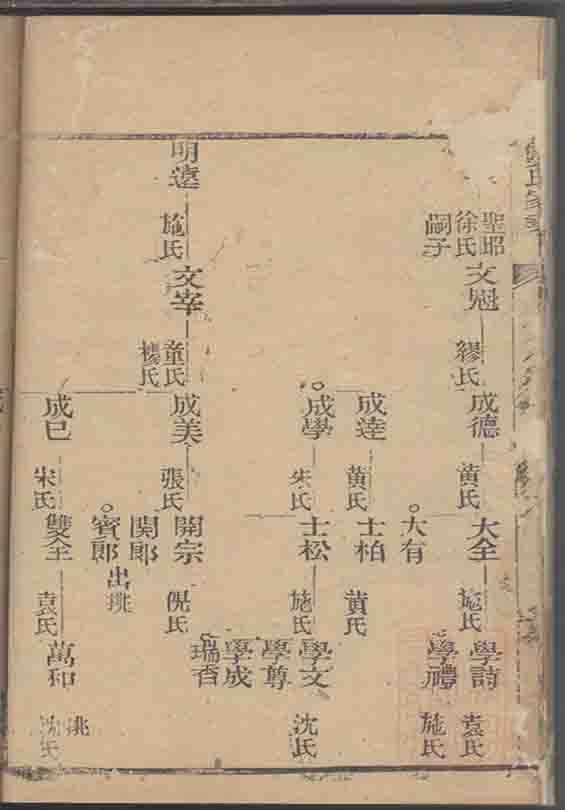 聖昭
徐氏
嗣子
明遠
施氏
文冠
繆氏
文宰
童氏
樓氏
成德
黄氏
成達
黄氏
成學
朱氏
成美
張氏
成巳
宋氏
大全
施氏
大有
士柏
黄氏
士松
施氏
開宗
倪氏
関郎
賓郎
出挑
雙全
袁氏
學詩
袁氏
學禮
施氏
學文
沈氏
學尊
學成
瑞香
萬和
挑
沈氏